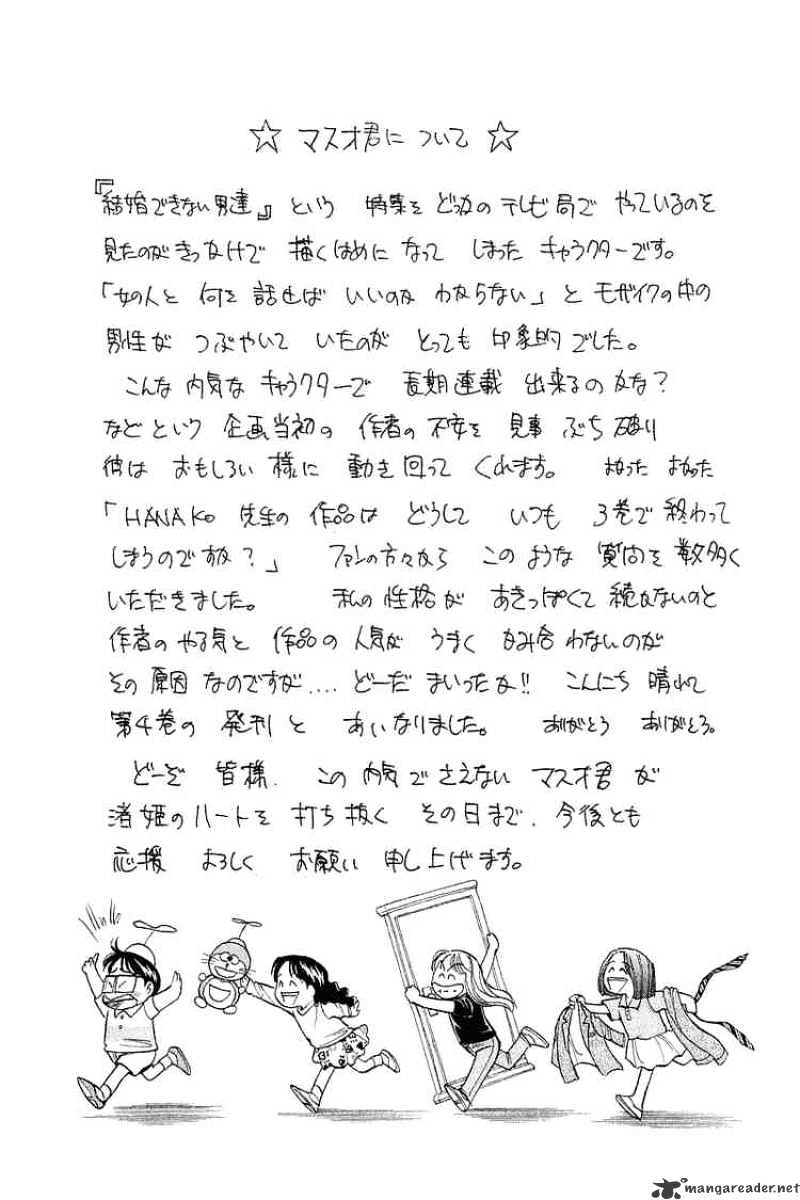 ☆ マスオ君について ☆
『結婚できない男達』という 特集を どっかの テレビ局で やっているのを
見たのがきっかけで 描くはめに なって しまった キャラクターです。
「女の人と 何を 話せば いいのか わからない」と モザイクの中の
男性が つぶやいて いたのが とっても 印象的でした。
こんな 内気な キャラクターで 長期連載 出来るのかな?
などという 企画当初の 作者の 不安を 見事 ぶち破り
彼は おもしろい様に 動き回って くれます。 よかった よかった
「HANAKO 先生の 作品は どうして いつも 3巻で 終わって
しまうのですか?」 ファンの方々から このような 質問を 数多く
いただきました。 私の 性格が あきっぽくて 続かないのと
作者の やる気と 作品の 人気が うまく かみ合わないのが
その 原因 なのですが.... どーだ まいったか!! こんにち 晴れて
第4巻の 発刊と あいなりました。 ありがとう ありがとう。
どーぞ 皆様. この 内気で さえない マスオ君が
渚姫のハートを 打ち抜く その日まで. 今後とも
応援 よろしく お願い 申し上げます。
mangareader.net